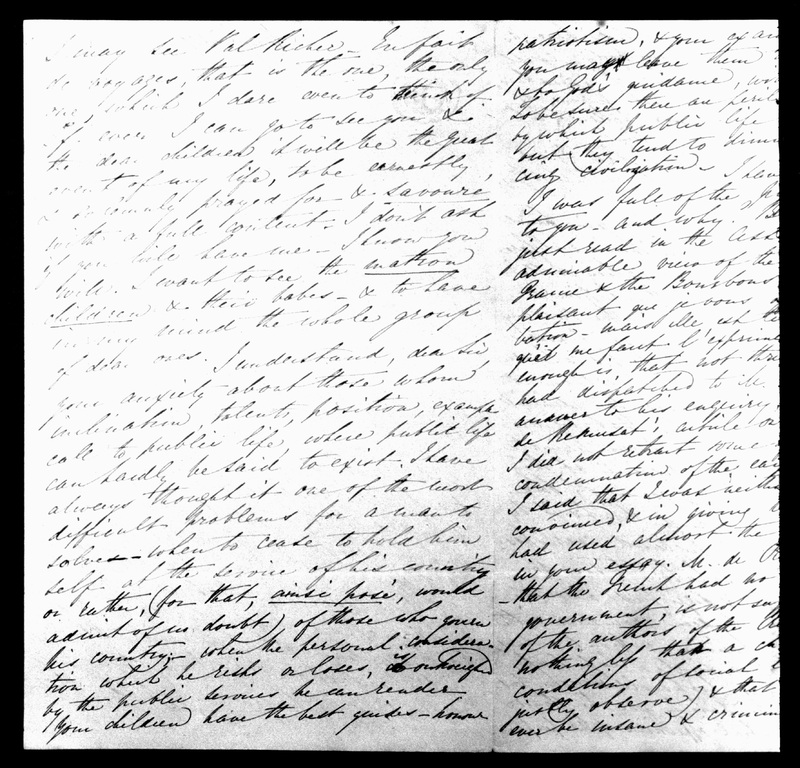 I may see Val Richer – En fait
de voyages, that is the one, the only
one, which I dare even to think of
If ever I can go to see you &
the dear children it will be the great
event of my life, to be earnestly,
prayed for – & savouré
with a full content – I don't ask
if you will have me – I know you
will. I want to see the matron
children & their babes – & to have
in my mind the whole group
of dear ones. I understand, dear Sir
your anxiety about those whom
inclination, talents, position, example
call to public life, where public life
can hardly be said to exist. I have
always thought it one of the most
difficult problems for a man to
solve – when to cease to hold him
self at the service of his country
or rather, (for that, ainsi posé, would
admit of no doubt) of those who govern
his country; when the personal considera-
tion which he risks or loses, is outweighed
by the public services he can render
Your children have the best guides – honour
patriotism, & your exam
you may leave them
& to God's guidance,
To be sure there are peril
by which public life
but they tend to dimin
any civilization – I have
I was full of the
to you – and why.
just read in the
admirable view of the
France & the Bourbons
plaisant que je vous
bation – mais elle est
qu'il me faut l'exprim
enough is, that not thr
had dispatched to M.
answer to his enquiry
de Remusat's article
I did not retract some
condemnation of the
I said that I was neith
convinced, & in giving
had used almost the
in your essay. M. de R
– that the French had no
government, is not
of the authors of the
nothing less than a ch
conditions of social
justly observe) & that
ever be insane & crimin